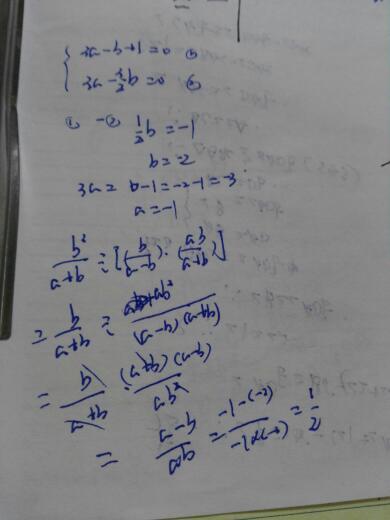 3a-b+1=0 ①
3a-\frac{3}{2}b=0 ②
①-② \frac{1}{2}b=-1
b=-2
3a=b-1=-2-1=-3
a=-1
\frac{b^2}{a+b}÷[(\frac{b}{a-b})·(\frac{ab}{a+b})]
=\frac{b}{a+b}÷\frac{ab^2}{(a-b)(a+b)}
=\frac{b}{a+b}·\frac{(a+b)(a-b)}{ab^2}
=\frac{a-b}{ab}=\frac{-1-(-2)}{-1×(-2)}=\frac{1}{2}